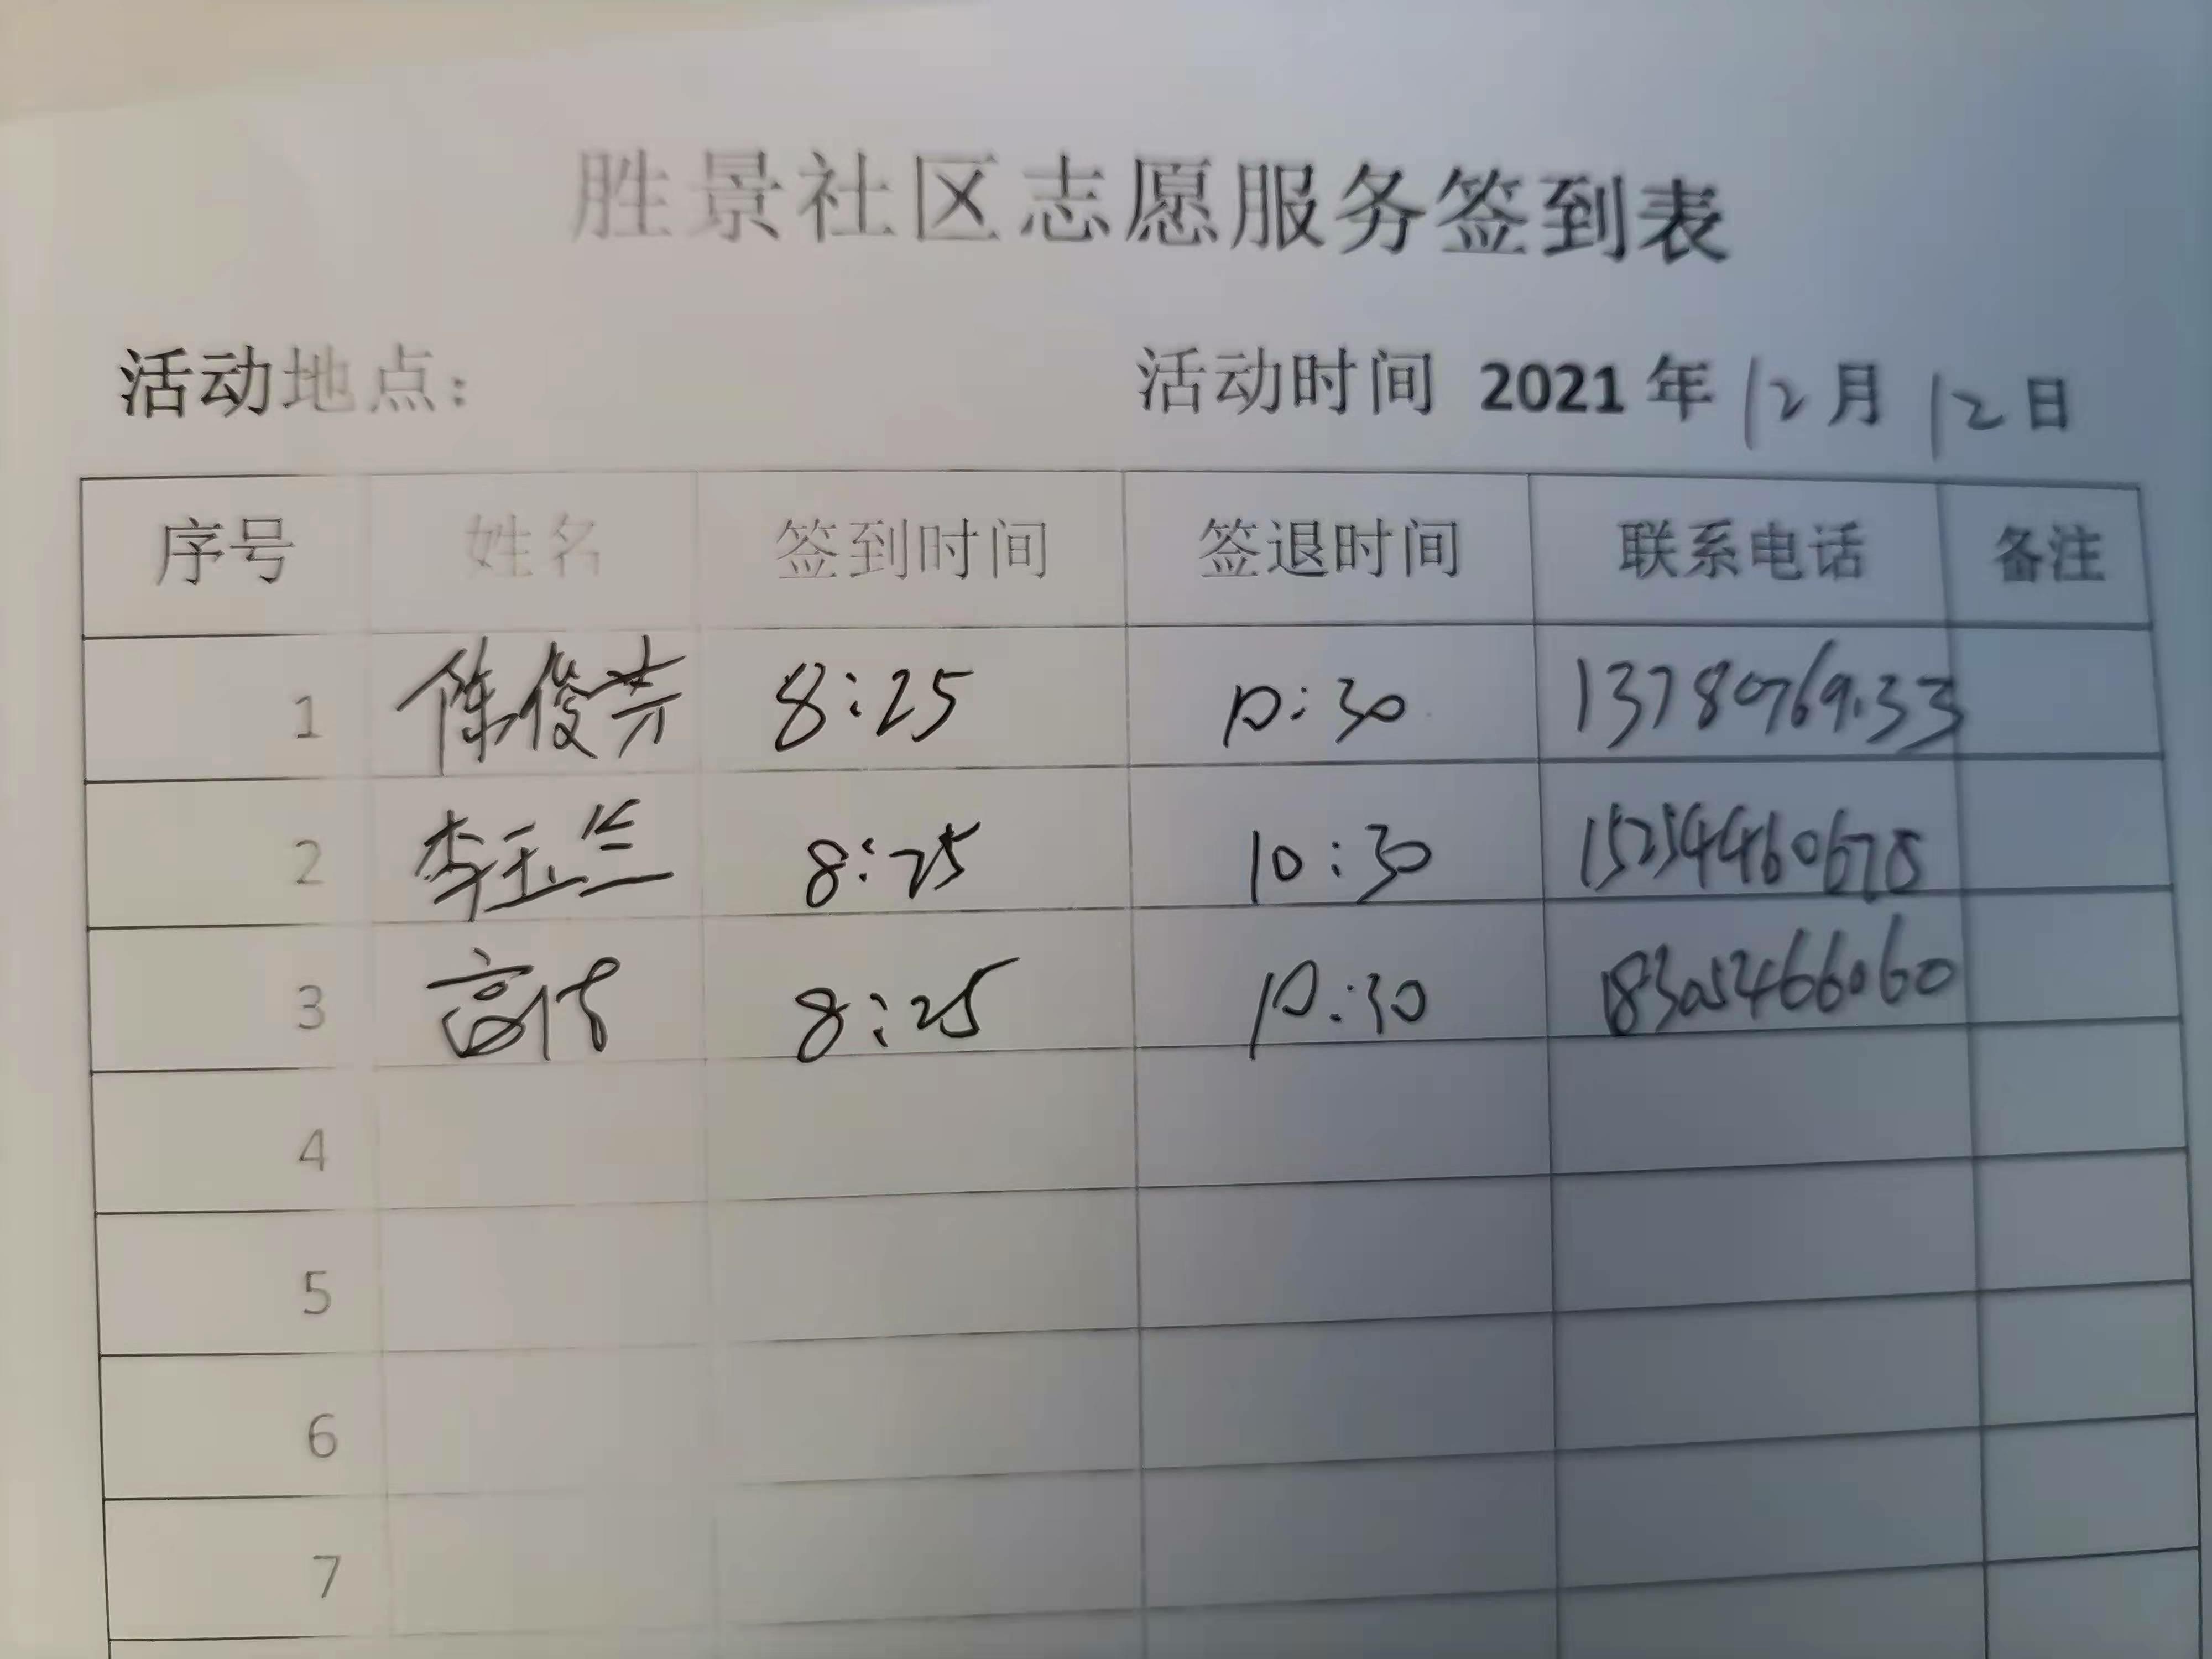 胜景社区志愿服务签到表
活动地点: 活动时间 2021年12月12日
序号 姓名 签到时间 签退时间 联系电话 备注
1 陈俊芳 8:25 10:30
2 李玉兰 8:25 10:30 15254460678
3 高伟 8:25 10:30 18305466060
4
5
6
7